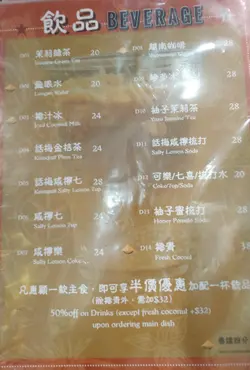 飲品 BEVERAGE
茉莉綠茶 20
Jasmine Green Tea
龍眼水 24
Longan Water
椰汁冰 24
Iced Coconut Milk
話梅金桔茶 24
Kumquat Plum Tea
話梅咸檸七 28
Kumquat Salty Lemon 7up
咸檸七 24
Salty Lemon 7up
咸檸樂 24
Salty Lemon Coke
越南咖啡
柚子茉莉茶 28
Yuzu Jasmine Tea
話梅咸檸梳打 28
Salty Lemon Soda
可樂/七喜/梳打水 20
Coke/7up/Soda
柚子蜜梳打 28
Honey Pomelo Soda
椰青
Fresh Coconut
凡惠顧一款主食，即可享半價優惠加配一杯飲品
(除椰青外，需加$32)
50%off on Drinks (except fresh coconut +$32)
upon ordering main dish